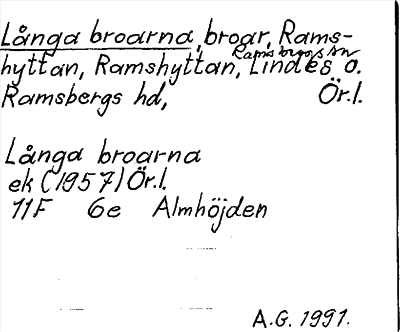 Långa broarna, broar, Rams-
hyttan, Ramshyttan, Ramsbergs sn
Lindes o.
Ramsbergs hd, Ör.l.
Långa broarna
ek (1957) Ör.l.
11F 6e Almhöjden
A.G. 1991.